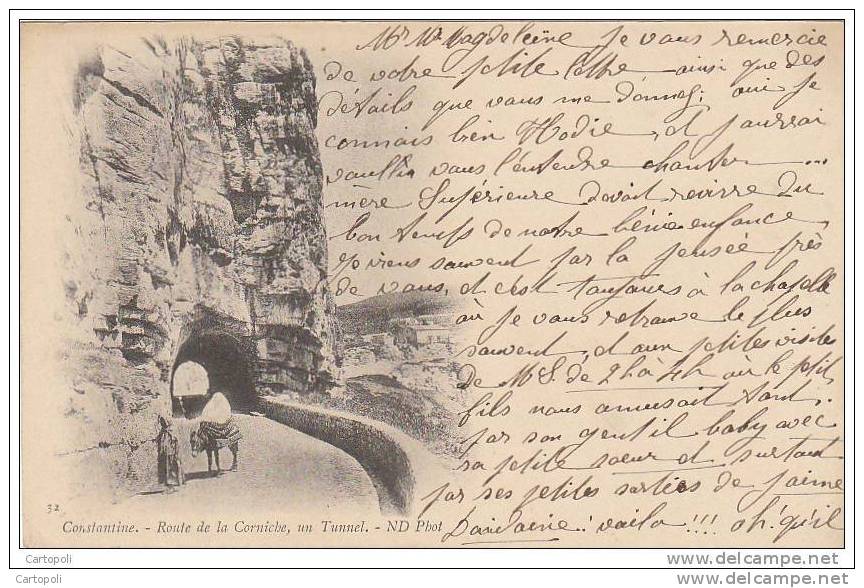 Je vous remercie
de votre petite lettre ainsi que des
détails que vous me donnez; oui je
connais bien Hodie, et j'aurrai
vous l'entendre chanter ...
mère Supérieure devait revivre du
bon temps de notre bénie enfance,
Je viens souvent par la pensée près
de vous, et c'est toujours à la chapelle
où je vous retrouve le plus
souvent, et aux petites visites
de M. S. de 2h à 4h où le petit
fils nous amusait tant.
par son gentil baby avec
sa petite soeur et surtout
par ses petites sorties de j'aime
voila !!! oh! qu'il
32
Constantine. - Route de la Corniche, un Tunnel. - ND Phot
Cartopoli
Cartopoli
www.delcampe.net